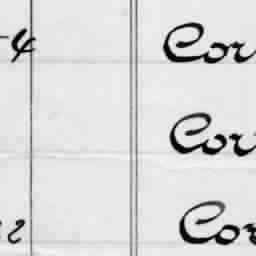 4 Cor
Cor
2 Cor